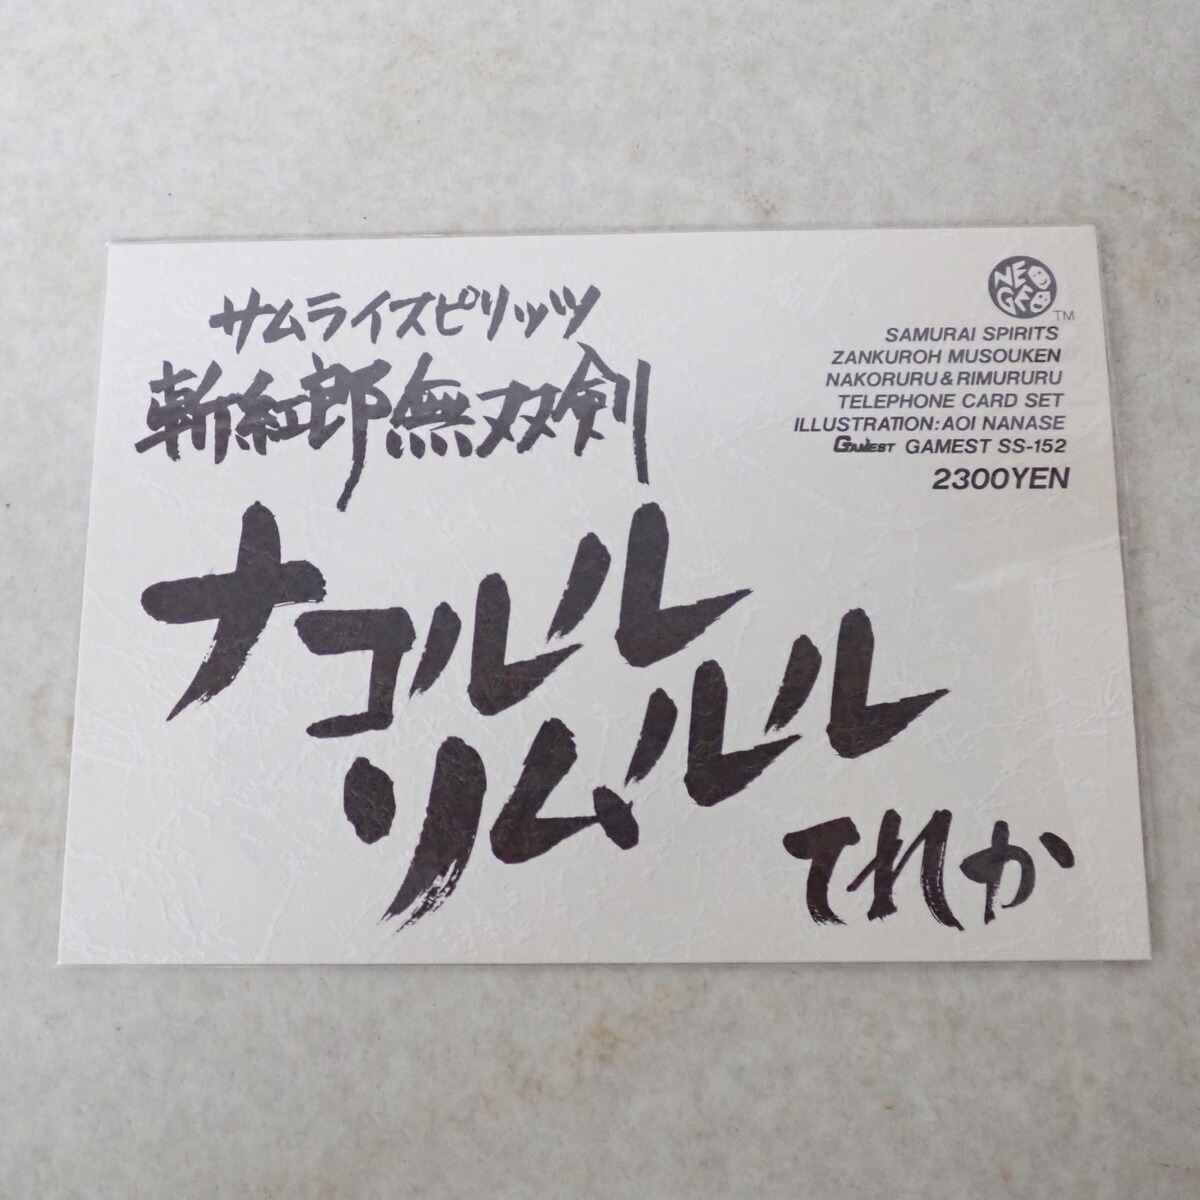 サムライスピリッツ
斬紅郎無双剣
NEO
GEO
TM
SAMURAI SPIRITS
ZANKUROH MUSOUKEN
NAKORURU & RIMURURU
TELEPHONE CARD SET
ILLUSTRATION: AOI NANASE
GAMEST GAMEST SS-152
2300YEN
ナコルル
リムルル
てれか